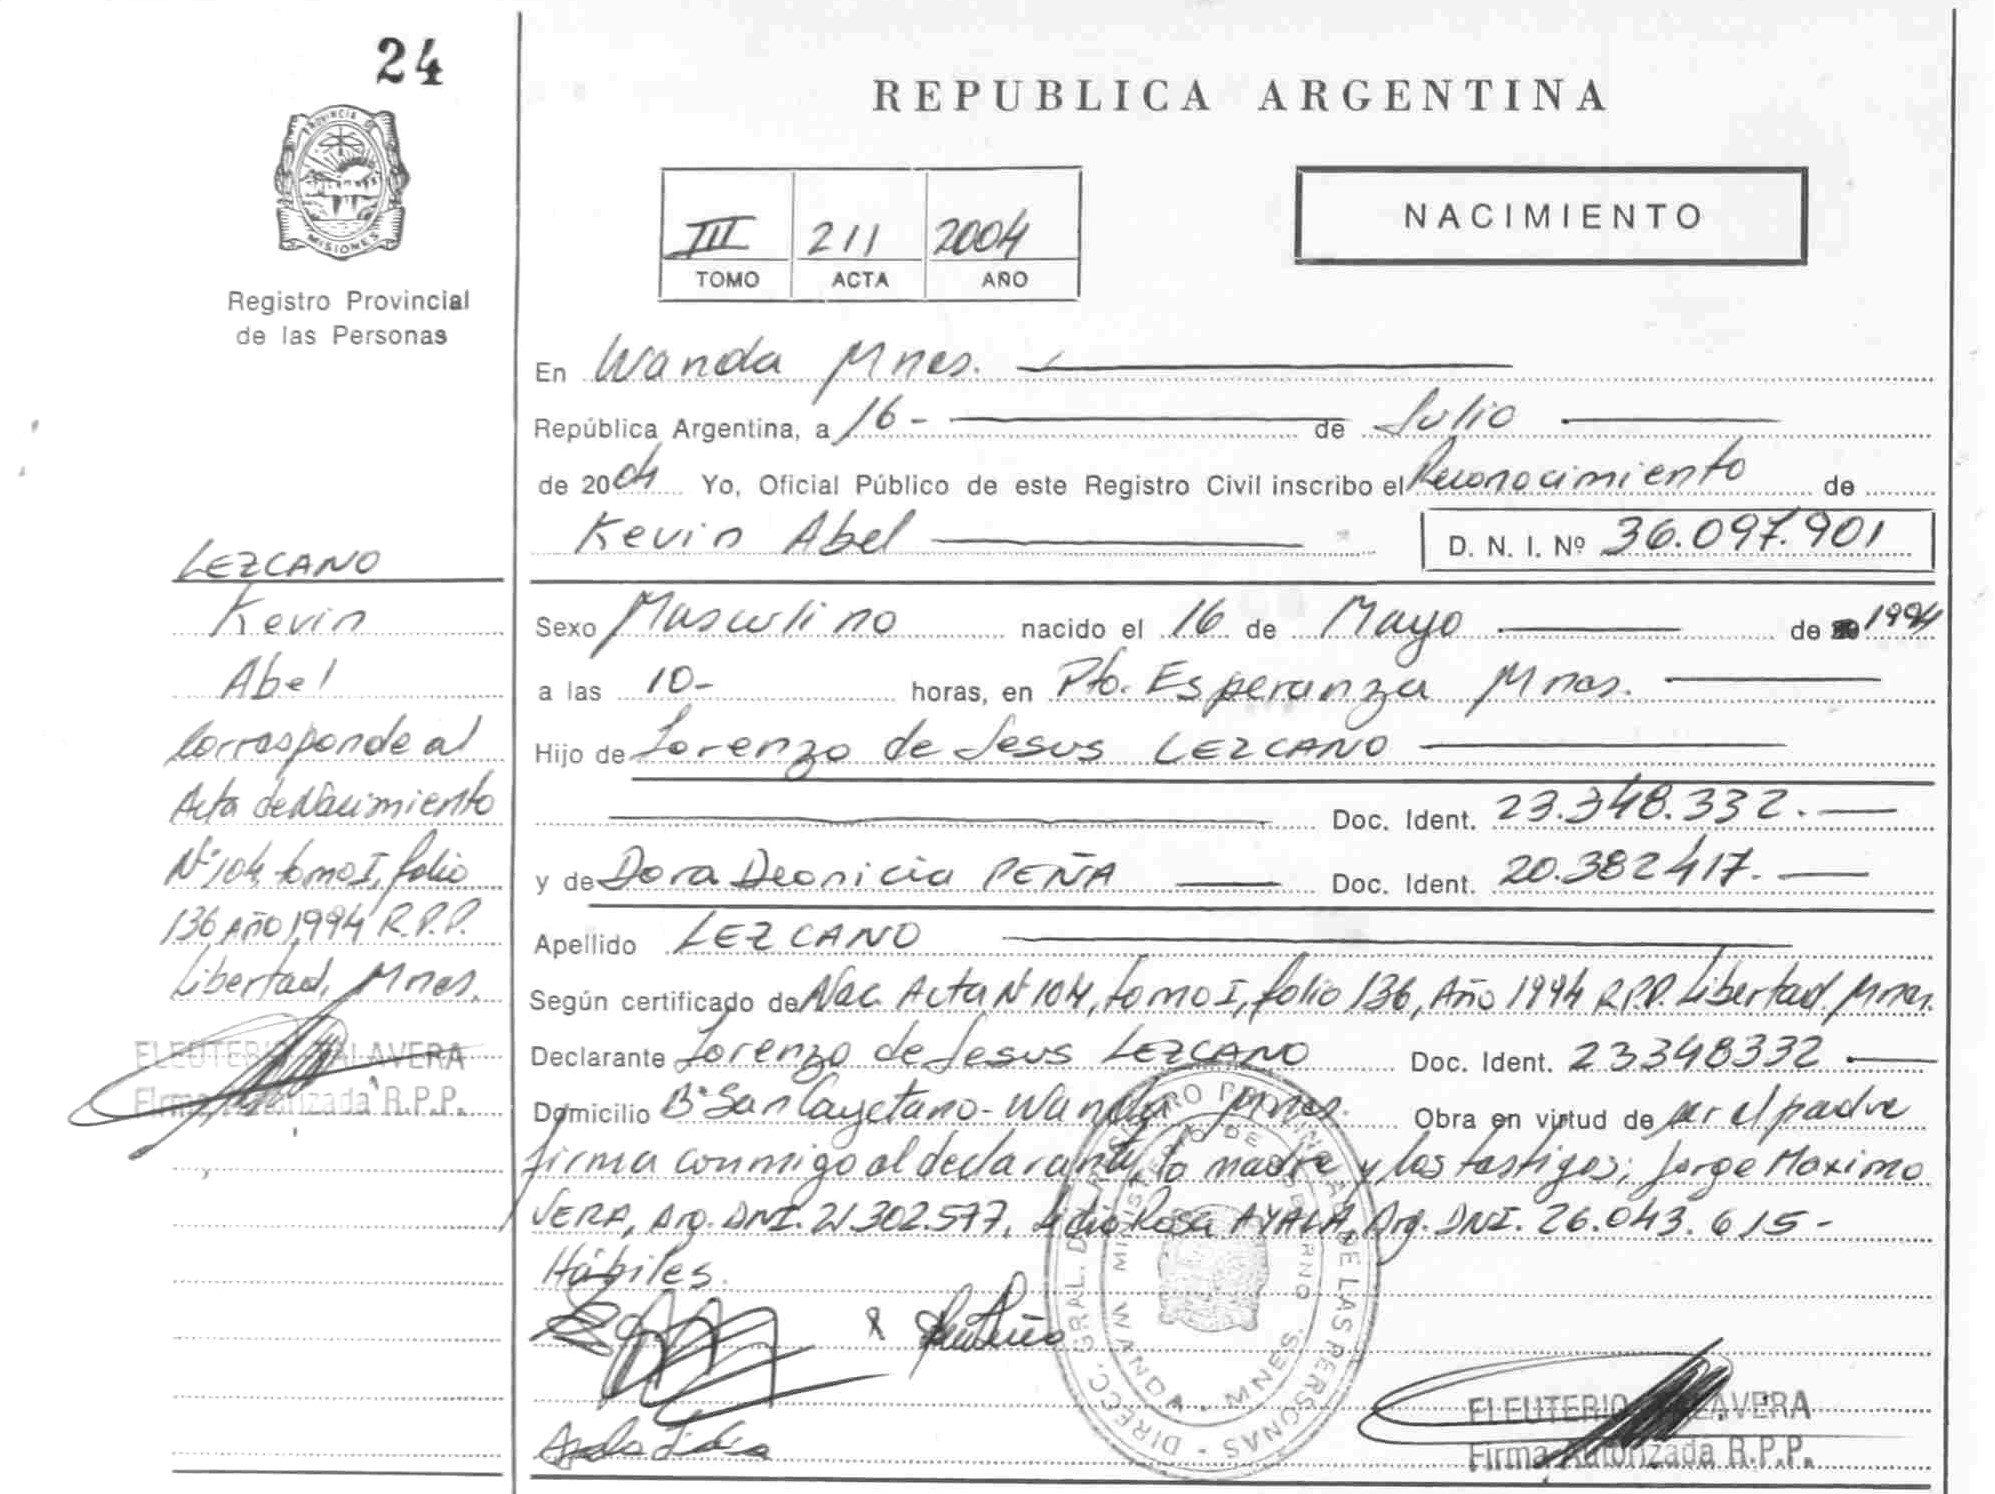 24
PROVINCIA DE
MISIONES
Registro Provincial
de las Personas
REPUBLICA ARGENTINA
III 211 2004
TOMO ACTA AÑO
NACIMIENTO
En Wanda Mnes.
República Argentina, a 16- de Julio
de 2004 Yo, Oficial Público de este Registro Civil inscribo el Reconocimiento de
Kevin Abel D. N. I. Nº 36.097.901
Sexo Masculino nacido el 16 de Mayo de 1994
a las 10- horas, en Pto. Esperanza Mnes.
Hijo de Lorenzo de Jesus LEZCANO
Doc. Ident. 23.348.332.-
y de Dora Deonicia PEÑA Doc. Ident. 20.382417.-
Apellido LEZCANO
Según certificado de Nac. Acta Nº 104, tomo I, folio 136, Año 1994 R.P.P. Libertad, Mnes.
Declarante Lorenzo de Jesus LEZCANO Doc. Ident. 23348332
Domicilio Bº San Cayetano - Wanda Mnes. Obra en virtud de ser el padre
firma conmigo el declarante, la madre y los testigos; Jorge Maximo
VERA, Arg. DNI. 21.302.577, Lidia Rosa AYALA, Arg. DNI. 26.043.615-
Hábiles.
Ayala Lidia
DIRECC. GRAL. DEL REGISTRO PROVINCIAL DE LAS PERSONAS
MINISTERIO DE GOBIERNO
WANDA - MNES.
ELEUTERIO TALAVERA
Firma Autorizada R.P.P.
LEZCANO
Kevin
Abel
Corresponde al
Acta de Nacimiento
Nº 104, tomo I, folio
136 Año 1994 R.P.P.
Libertad, Mnes.
ELEUTERIO TALAVERA
Firma Autorizada R.P.P.